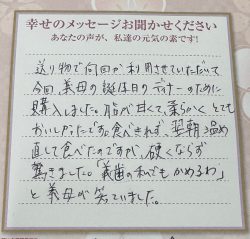 幸せのメッセージお聞かせください
あなたの声が、私達の元気の素です!
送り物で何回か利用させていただいて
今回、義母の誕生日のディナーのために
購入しました。脂が甘くて、柔らかくとても
おいしかったです。食べきれず、翌朝温め
直して食べたのですが、硬くならず
驚きました。「義歯の私でもかめるわ」
と義母が笑っていました。